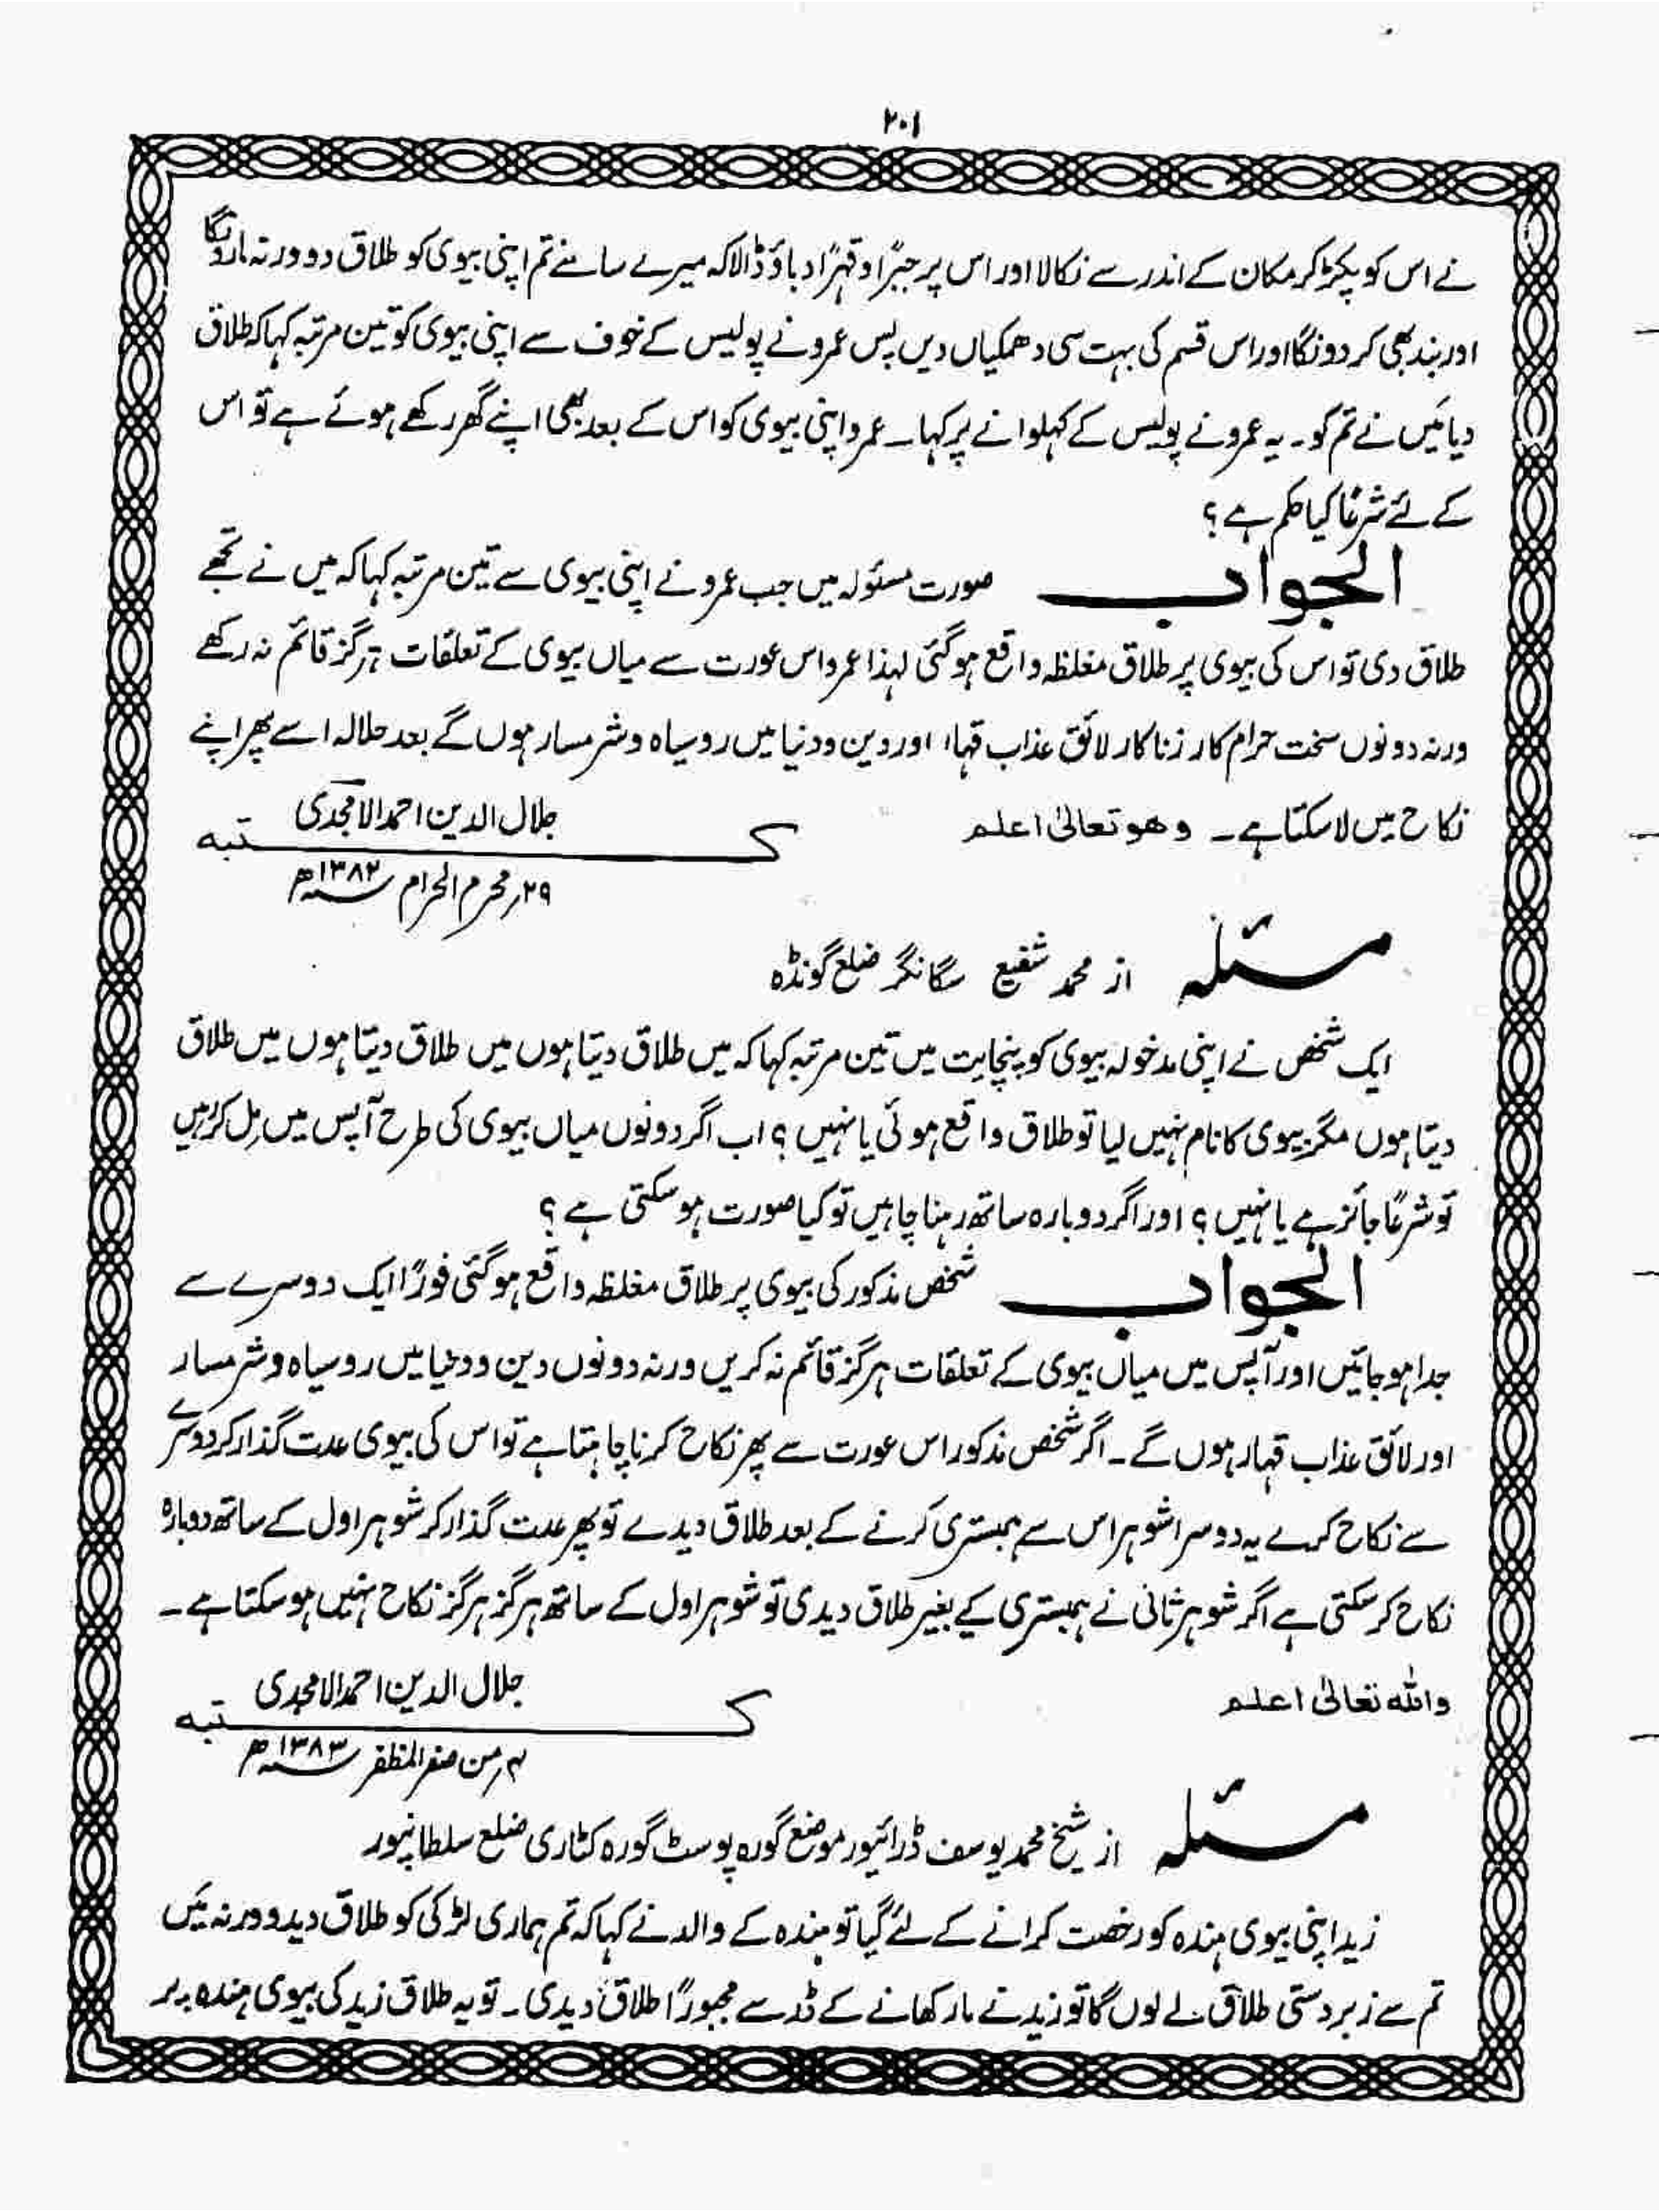 ۲۰۱
نے اس کو پکڑ کر مکان کے اندر سے نکالا اور اس پر جبرًا وقہرًا دباؤ ڈالا کہ میرے سامنے تم اپنی بیوی کو طلاق دو ورنہ مارونگا
اور بند بھی کر دونگا اور اس قسم کی بہت سی دھمکیاں دیں پس عمرو نے پولیس کے خوف سے اپنی بیوی کو تین مرتبہ کہا کہ طلاق
دیا میں نے تم کو ۔ یہ عمرو نے پولیس کے کہلوانے پر کہا ۔ عمرو اپنی بیوی کو اس کے بعد بھی اپنے گھر رکھے ہوئے ہے تو اس
کے لئے شرعًا کیا حکم ہے ؟
الجواب صورت مسئولہ میں جب عمرو نے اپنی بیوی سے تین مرتبہ کہا کہ میں نے تجھے
طلاق دی تو اس کی بیوی پر طلاق مغلظہ واقع ہو گئی لہذا عمرو اس عورت سے میاں بیوی کے تعلقات ہرگز قائم نہ رکھے
ورنہ دونوں سخت حرام کار زنا کار لائق عذاب قہار اور دین و دنیا میں روسیاہ و شرمسار ہوں گے بعد حلالہ اسے پھر اپنے
نکاح میں لا سکتا ہے ۔ وھو تعالیٰ اعلم
جلال الدین احمد الامجدی
کتبہ
۲۹؍ محرم الحرام ۱۳۸۳ھ
مسئلہ از محمد شفیع سگانگر ضلع گونڈہ
ایک شخص نے اپنی مدخولہ بیوی کو پنچایت میں تین مرتبہ کہا کہ میں طلاق دیتا ہوں میں طلاق دیتا ہوں میں طلاق
دیتا ہوں مگر بیوی کا نام نہیں لیا تو طلاق واقع ہوئی یا نہیں ؟ اب اگر دونوں میاں بیوی کی طرح آپس میں مل کر رہیں
تو شرعًا جائز ہے یا نہیں ؟ اور اگر دوبارہ ساتھ رہنا چاہیں تو کیا صورت ہو سکتی ہے ؟
الجواب شخص مذکور کی بیوی پر طلاق مغلظہ واقع ہو گئی فورًا ایک دوسرے سے
جدا ہو جائیں اور آپس میں میاں بیوی کے تعلقات ہرگز قائم نہ کریں ورنہ دونوں دین و دنیا میں روسیاہ و شرمسار
اور لائق عذاب قہار ہوں گے ۔ اگر شخص مذکور اس عورت سے پھر نکاح کرنا چاہتا ہے تو اس کی بیوی عدت گذار کر دوسرے
سے نکاح کرے یہ دوسرا شوہر اس سے ہمبستری کرنے کے بعد طلاق دیدے تو پھر عدت گذار کر شوہر اول کے ساتھ دوبارہ
نکاح کر سکتی ہے اگر شوہر ثانی نے ہمبستری کے بغیر طلاق دیدی تو شوہر اول کے ساتھ ہرگز ہرگز نکاح نہیں ہو سکتا ہے ۔
واللہ تعالیٰ اعلم
جلال الدین احمد الامجدی
کتبہ
من صفر المظفر ۱۳۸۳ھ
مسئلہ از شیخ محمد یوسف ڈرائیور موضع گورہ پوسٹ گورہ کٹاری ضلع سلطانپور
زید اپنی بیوی ہندہ کو رخصت کرانے کے لئے گیا تو ہندہ کے والد نے کہا کہ تم ہماری لڑکی کو طلاق دیدو ورنہ میں
تم سے زبردستی طلاق لے لوں گا تو زید نے مار کھانے کے ڈر سے مجبورًا طلاق دیدی ۔ تو یہ طلاق زید کی بیوی ہندہ پر